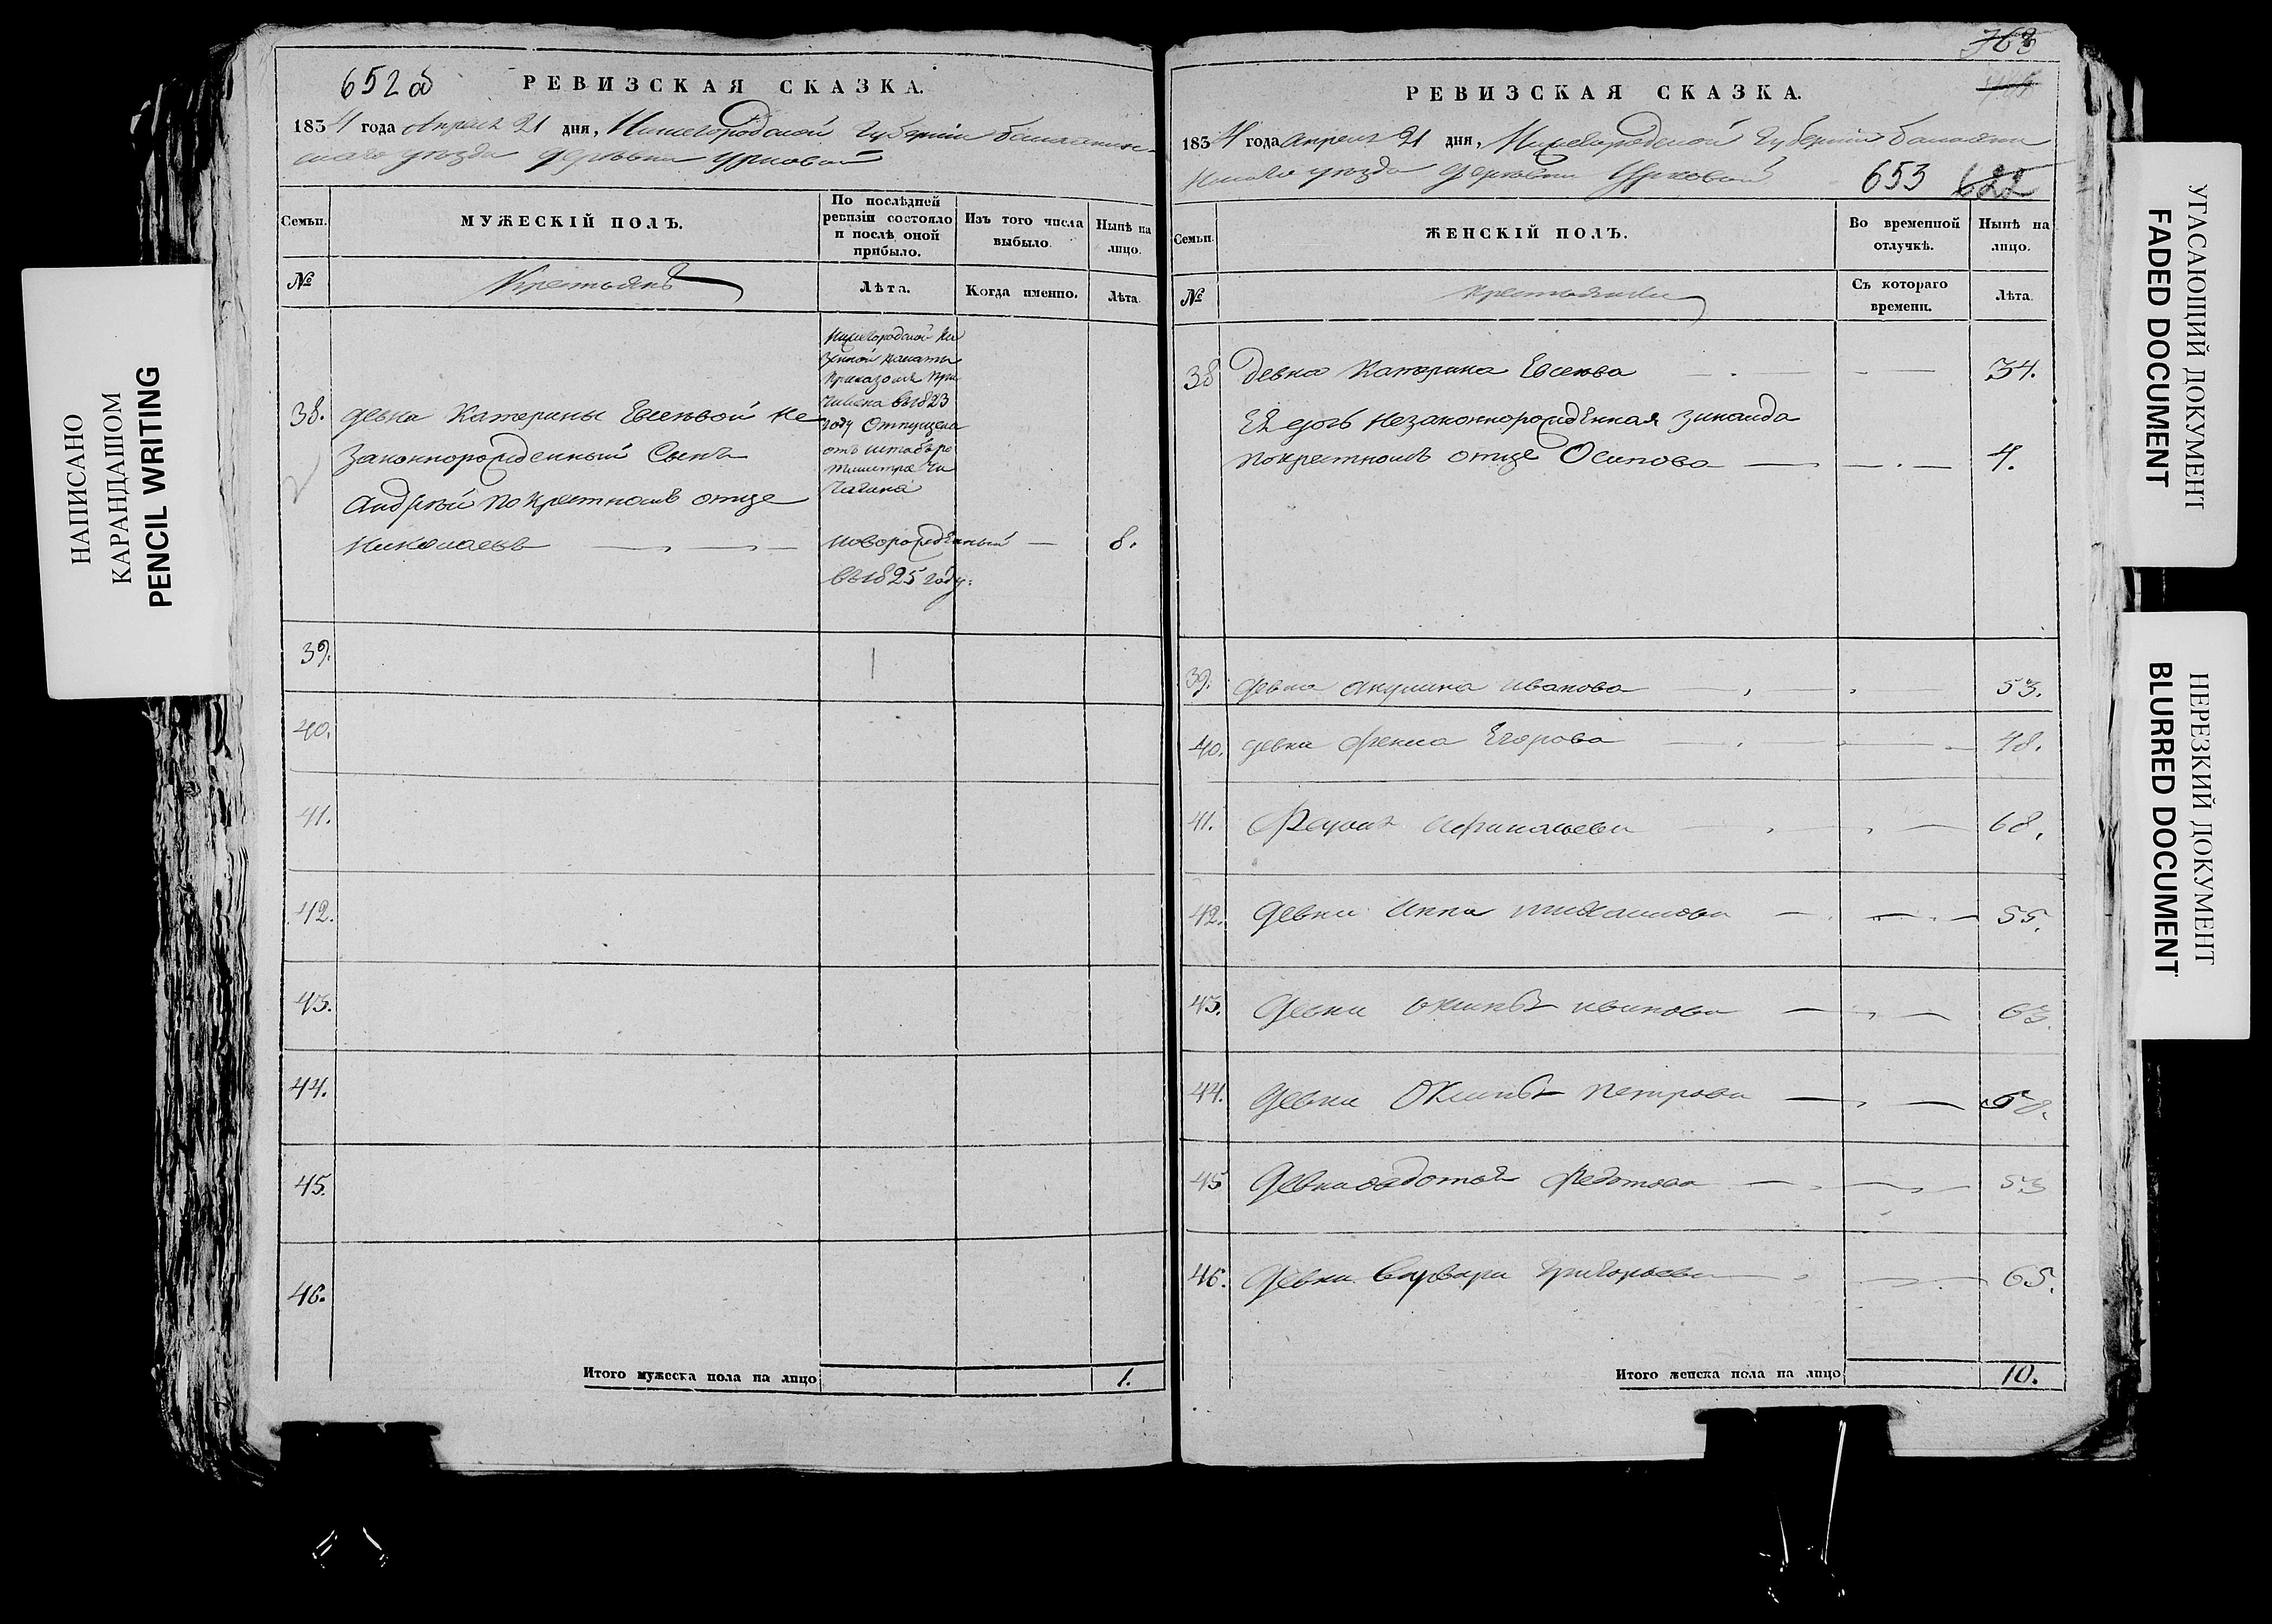 НАПИСАНО
КАРАНДАШОМ
PENCIL WRITING
652 об
РЕВИЗСКАЯ СКАЗКА.
1834 года Апреля 21 дня, Нижегородской Губернии Балахнин-
скаго уезда деревни Урковой
Семьи.
МУЖЕСКІЙ ПОЛЪ.
По послѣдней
ревизіи состояло
и послѣ оной
прибыло.
Изъ того числа
выбыло.
Нынѣ на
лицо.
№
Крестьянъ
Лѣта.
Когда именно.
Лѣта.
Нижегородской Ка
зенной палаты
приказомъ при
числена въ 1823
году Отпущена
отъ
38. девка Катерины Евсеевой не
законнорожденный Сынъ
Андрей по крестномъ отце
Николаевъ
новорожденный 8.
въ 1825 году.
39.
40.
41.
42.
43.
44.
45.
46.
Итого мужеска пола на лицо 1.
763
РЕВИЗСКАЯ СКАЗКА.
1834 года Апреля 21 дня, Нижегородской Губерніи Балахни
нскаго уезда деревни Урковой
653 622
Семьи.
ЖЕНСКІЙ ПОЛЪ.
Во временной
отлучкѣ.
Нынѣ на
лицо.
№
Крестьянки
Съ котораго
времени.
Лѣта.
38 девка Катерина Евсеева 34.
Её дочь незаконнорожденная Зинаида
по крестномъ отце Осипова 4.
39. девка Акулина Иванова 53.
40. девка Фекла Егорова 48.
41. 68.
42. Девка Анна Михайлова 55.
43. Девка Иванова 63.
44. Девка Петрова 58.
45 Девка Авдотья Федотова 53
46. Девка Варвара Григорьева 65.
Итого женска пола на лицо 10.
УГАСАЮЩИЙ ДОКУМЕНТ
FADED DOCUMENT
НЕРЕЗКИЙ ДОКУМЕНТ
BLURRED DOCUMENT